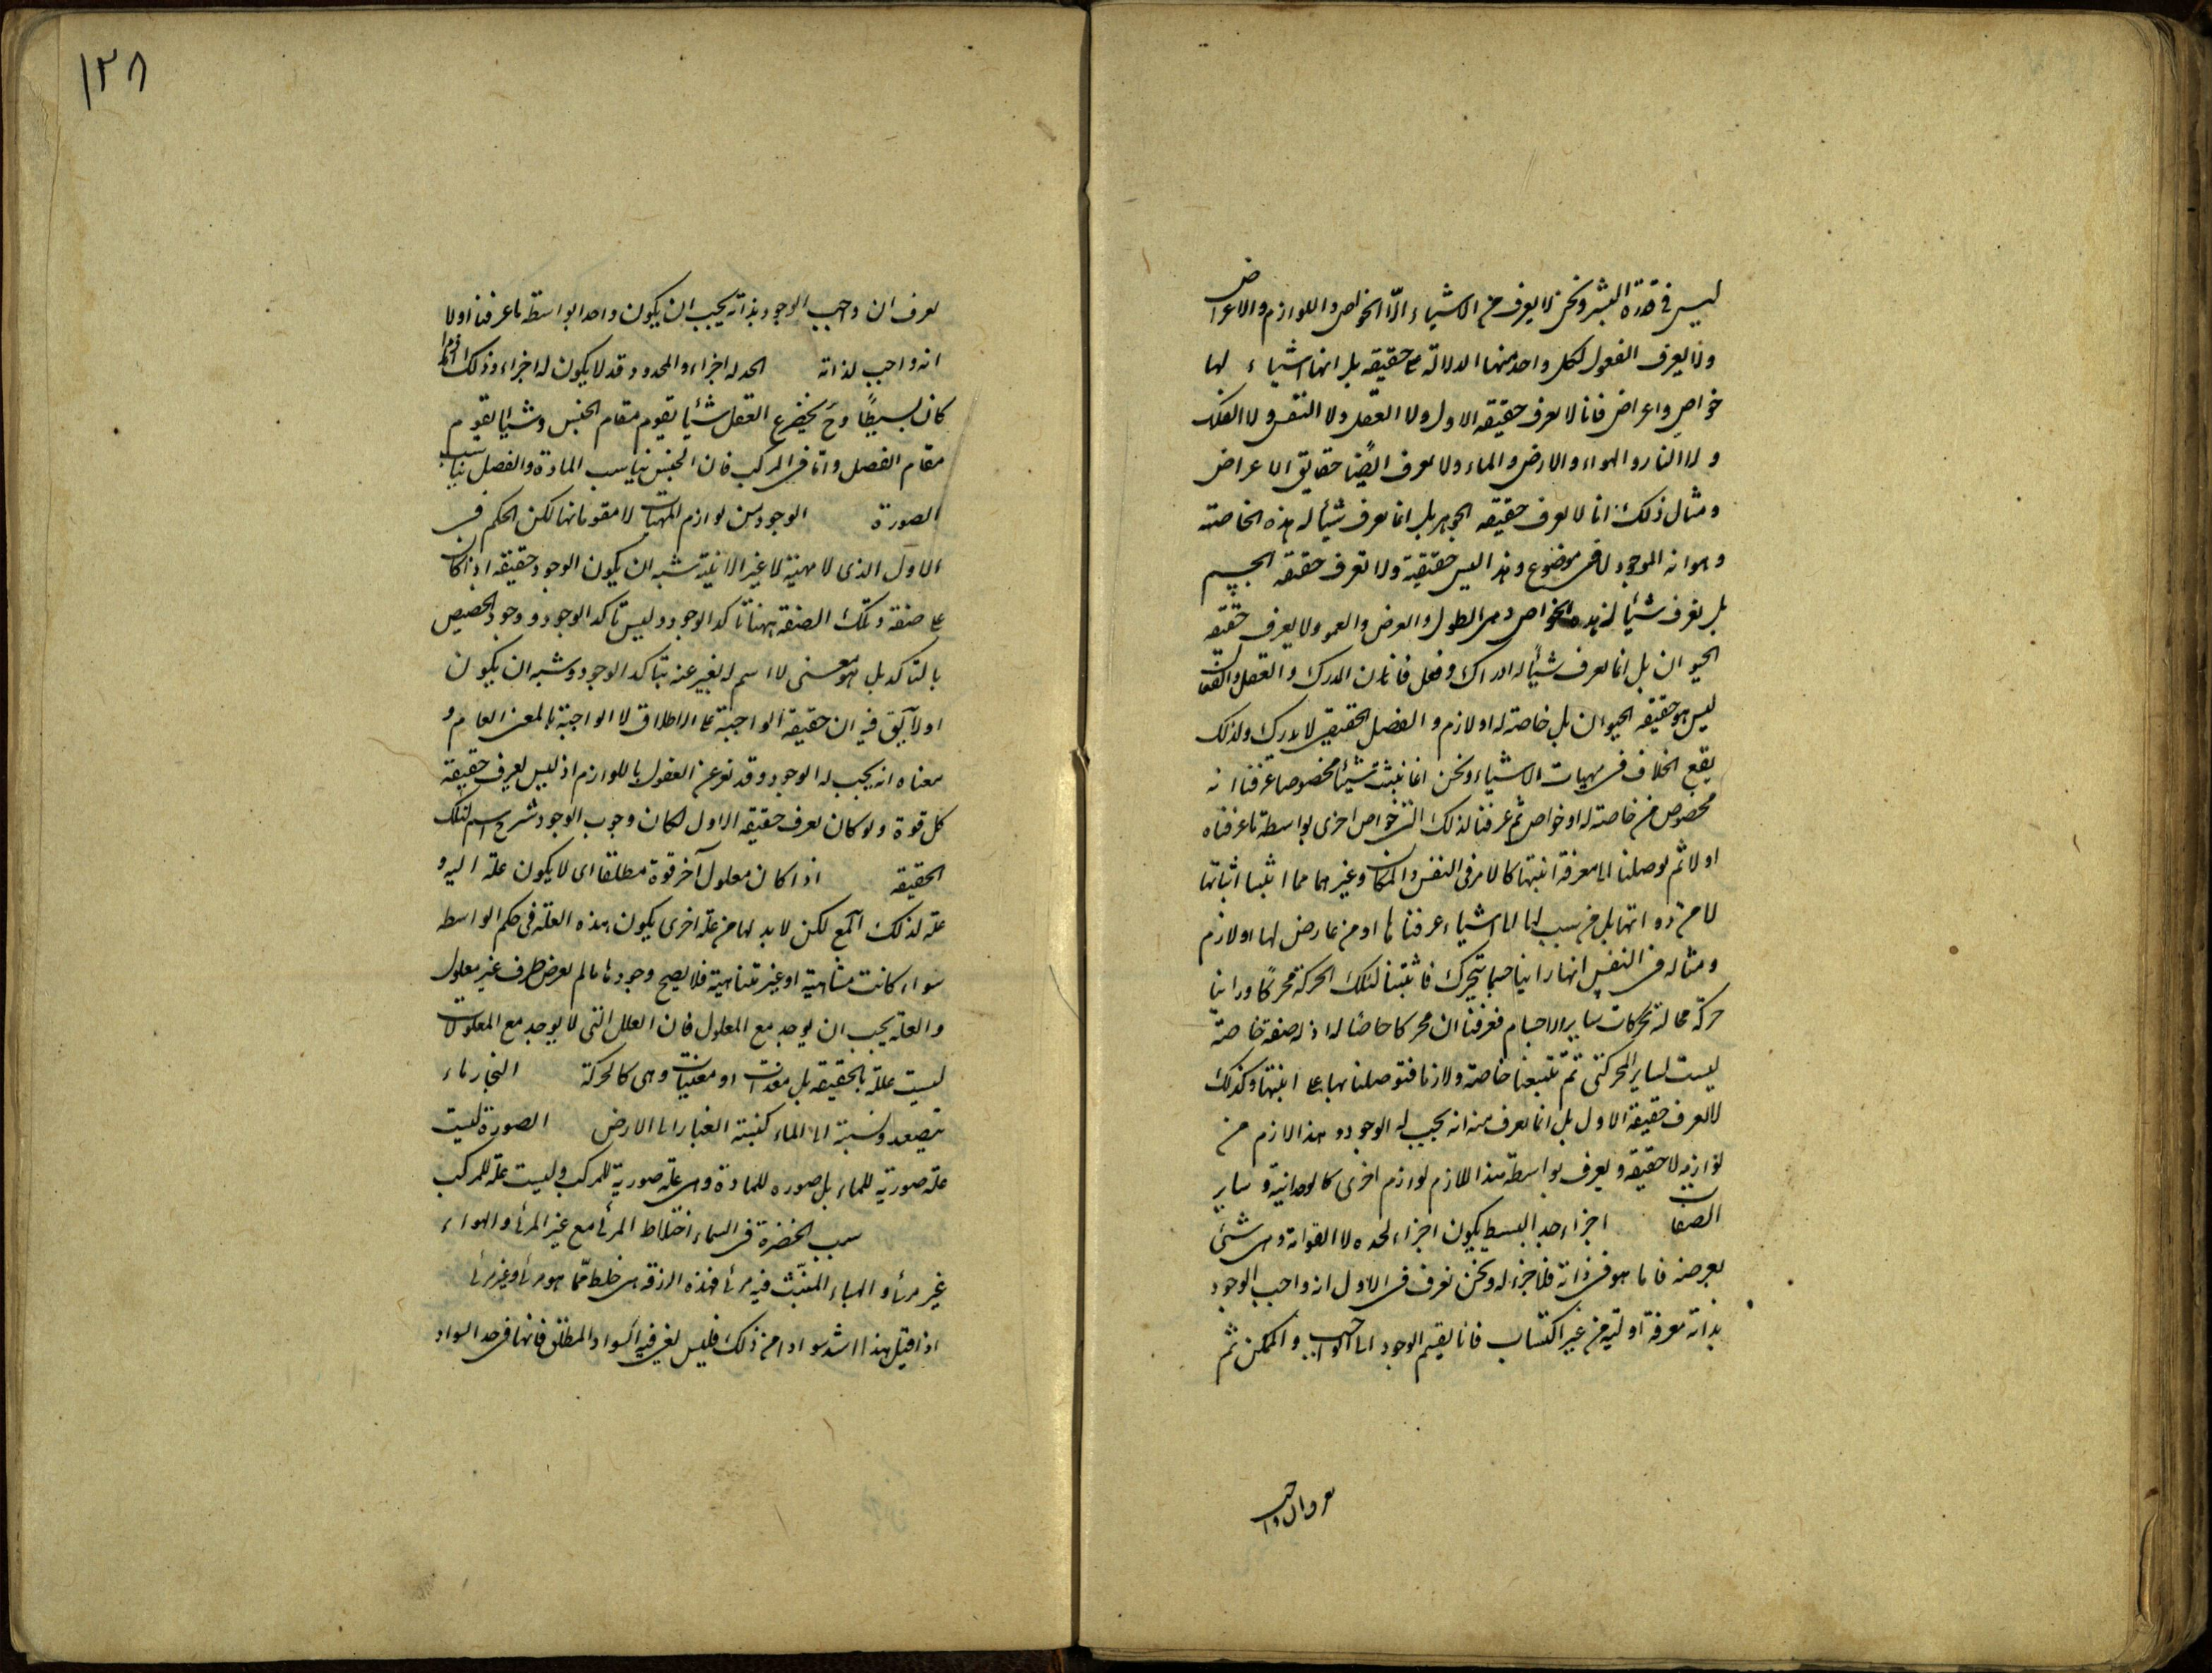 ليس في قدرة البشر ونحن لا يعرف من الاشياء الّا الخواص واللوازم والاعراض
ولا يعرف الفصول لكل واحد منها الدلالة على حقيقته بل انها اشياء لها
خواص واعراض فانا لا نعرف حقيقة الاول ولا العقل ولا النفس ولا الفلك
ولا النار والهواء والارض والماء ولا نعرف ايضًا حقايق الاعراض
ومثال ذلك انا لا نعرف حقيقة الجوهر بل انما نعرف شيئا له هذه الخاصة
وهو انه الموجود لا فى موضوع وهذا ليس حقيقته ولا نعرف حقيقة الجسم
بل نعرف شيئا له هذه الخواص وهى الطول والعرض والعمق ولا يعرف حقيقة
الحيوان بل انما نعرف شيئًا له ادراك وفعل فان المدرك والفعل والفعال
ليس هو حقيقة الحيوان بل خاصة له او لازم والفصل الحقيقى لا يدرك ولذلك
يقع الخلاف فى مهيات الاشياء ونحن انما نثبت شيئا مخصوصا عرفنا انه
مخصوص من خاصة له او خواص ثم عرفنا لذلك الشئ خواص اخرى بواسطة ما عرفناه
اولا ثم توصلنا الى معرفة انيتها كالامر فى النفس والمكان وغيرهما مما اثبتنا انياتها
لا من ذواتها بل من نسب لها الى اشياء عرفناها او من عارض لها او لازم
ومثاله فى النفس انها راينا جسما يتحرك فاثبتنا لتلك الحركة محركًا وراينا
حركة مخالفة لحركات ساير الاجسام فعرفنا ان محركا خاصًا له اذ له صفة خاصة
ليست لساير المحركين ثم تتبعنا خاصة ولازما فتوصلنا بها على انيتها وكذلك
لا نعرف حقيقة الاول بل انما نعرف منه انه يجب له الوجود وهذا لازم من
لوازمه لا حقيقته ويعرف بواسطة هذا اللازم لوازم اخرى كالوحدانية وساير
الصفات اجزاء حد البسيط يكون اجزاء لحده لا لقوامه وهى شئ
يعرضه فاما هو فى ذاته فلا جزء له ونحن نعرف فى الاول انه واجب الوجود
بذاته معرفة اولية من غير اكتساب فانا نقسم الوجود الى الواجب والممكن ثم
نعرف ان واجب
١٢٨
نعرف ان واجب الوجود بذاته يجب ان يكون واحدا بواسطة ما عرفناه اولا
انه واجب لذاته الحد له اجزاء والمحدود قد لا يكون له اجزاء وذلك اذا
كان بسيطًا وح يخترع العقل شيئا يقوم مقام الجنس وشيئا يقوم
مقام الفصل واما فى المركب فان الجنس يناسب المادة والفصل يناسب
الصورة الوجود من لوازم المهيات لا مقوماتها لكن الحكم فى
الاول الذى لا مهية له غير الانية يشبه ان يكون الوجود حقيقة اذا كان
على صفة وتلك الصفة هنا تاكد الوجود وليس تاكد الوجود وجود يخصص
بالتاكد بل هو معنى لا اسم له يعبر عنه بتاكد الوجود ويشبه ان يكون
اولى يق فيه ان حقيقة الواجبة على الاطلاق لا الواجبة بالمعنى العام و
معناه انه يجب له الوجود وقد يعبر عن الفصول باللوازم اذ ليس يعرف حقيقة
كل قوة ولو كان نعرف حقيقة الاول لكان وجوب الوجود شرح اسم لتلك
الحقيقة اذا كان معلول آخر قوة مطلقا اى لا يكون علة اليه و
علة لذلك المع لكن لا بد لها من علة اخرى يكون هذه العلة فى حكم الواسطة
سواء كانت متناهية او غير متناهية فلا يصح وجودها ما لم يعرض طرف غير معلول
والعلة يجب ان يوجد مع المعلول فان العلل التى لا يوجد مع المعلولات
ليست عللا بالحقيقة بل معدات او معينات وهى كالحركة البخار ماء
يتصعد ونسبة الى الماء كنسبة الغبار الى الارض الصورة ليست
علة صورية للماء بل صورة للمادة وهى علة صورية للمركب وليست علة للمركب
سبب الخضرة فى السماء اختلاط المرئ مع غير المرئ والهواء
غير مرئ والهباء المنبث فيه مرئ فهذه الزرقة هى خلط مما هو مرئ وغير مرئ
اذا قيل هذا اشد سوادا من ذلك فليس يعنى فيه السواد المطلق فانها فى حد السواد